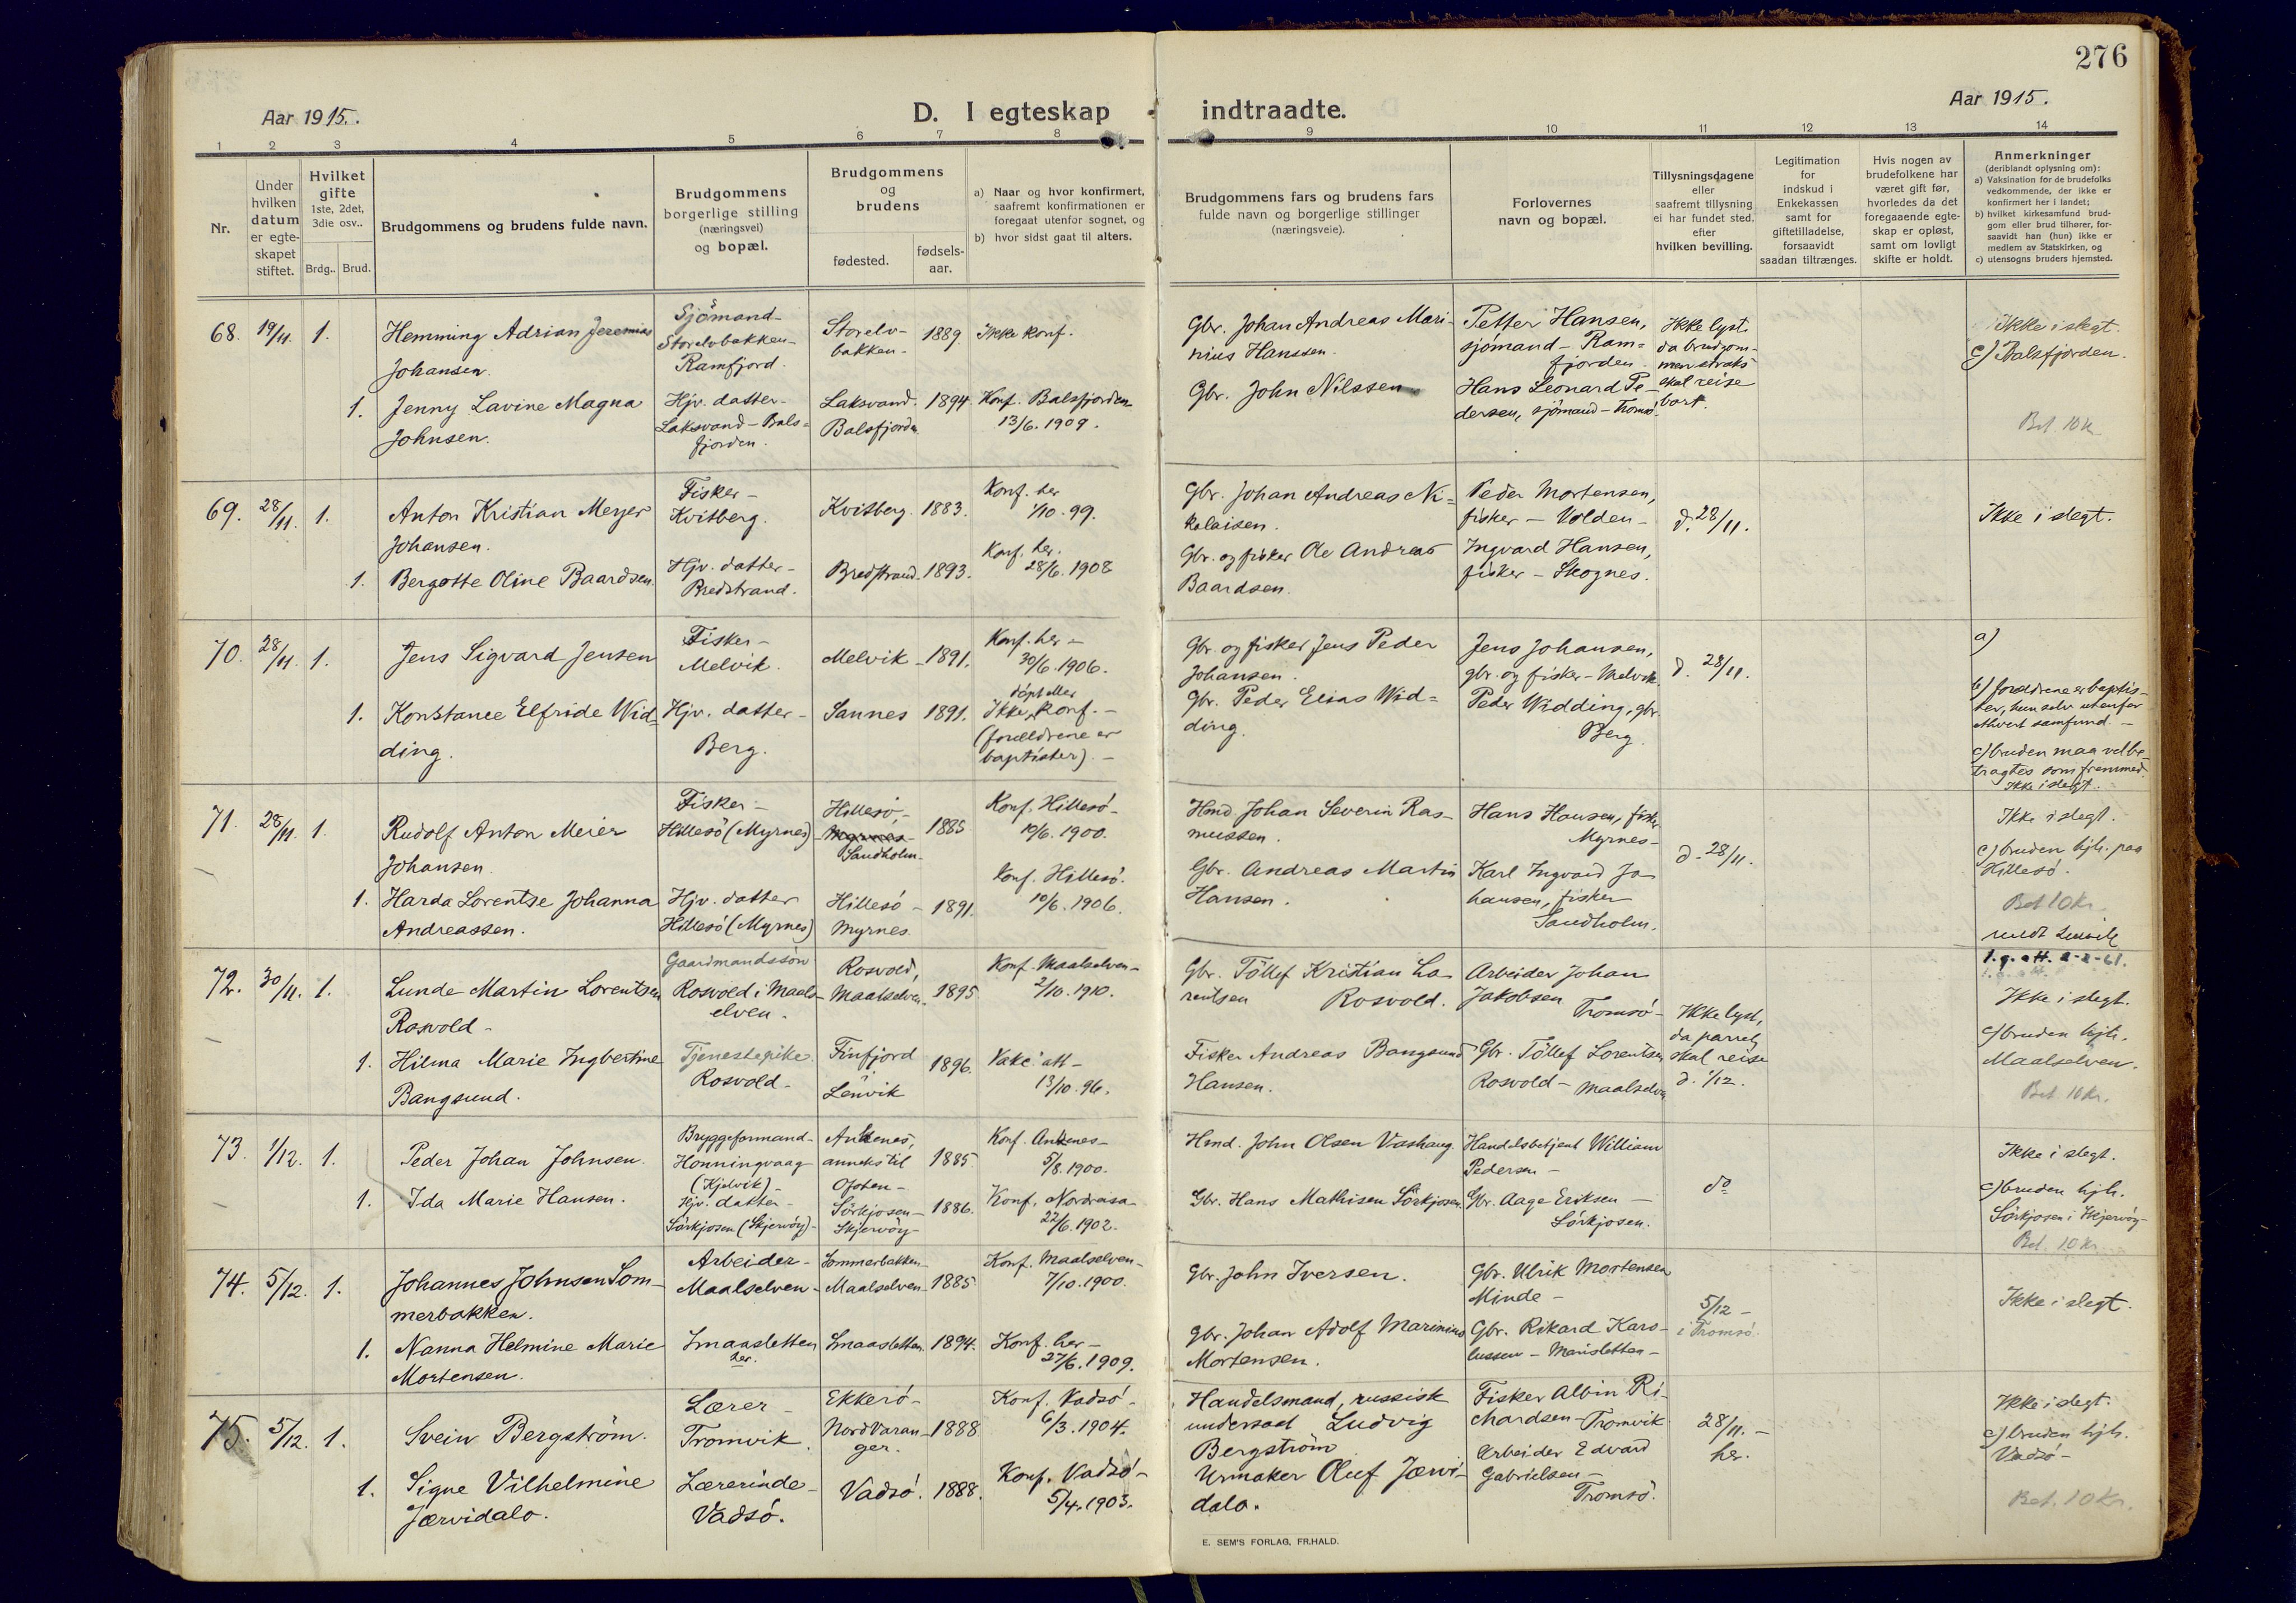 276
Aar 1915.
D. I egteskap indtraadte.
Aar 1915.
1 2 3 4 5 6 7 8 9 10 11 12 13 14
Nr.
Under
hvilken
datum
er egte-
skapet
stiftet.
Hvilket
gifte
1ste, 2det,
3die osv..
Brdg.. Brud.
Brudgommens og brudens fulde navn.
Brudgommens
borgerlige stilling
(næringsvei)
og bopæl.
Brudgommens
og
brudens
fødested.
fødsels-
aar.
a) Naar og hvor konfirmert,
saafremt konfirmationen er
foregaat utenfor sognet, og
b) hvor sidst gaat til alters.
Brudgommens fars og brudens fars
fulde navn og borgerlige stillinger
(næringsveie).
Forlovernes
navn og bopæl.
Tillysningsdagene
eller
saafremt tillysning
ei har fundet sted,
efter
hvilken bevilling.
Legitimation
for
indskud i
Enkekassen
samt for
giftetilladelse,
forsaavidt
saadan tiltrænges.
Hvis nogen av
brudefolkene har
været gift før,
hvorledes da det
foregaaende egte-
skap er opløst,
samt om lovligt
skifte er holdt.
Anmerkninger
(deriblandt oplysning om):
a) Vaksination for de brudefolks
vedkommende, der ikke er
konfirmert her i landet;
b) hvilket kirkesamfund brud-
gom eller brud tilhører, for-
saavidt han (hun) ikke er
medlem av Statskirken, og
c) utensogns bruders hjemsted.
68. 19/11. 1.
Hemming Adrian Jeremias
Johansen.
Sjömand-
Storelvbakken-
Ramfjord.
Storelv-
bakken-
1889.
Ikke konf.
Gbr. Johan Andreas Mari-
nius Hanssen.
Petter Hansen,
sjömand - Ram=
fjorden.
Ikke lyst
da brudgom-
men straks
skal reise
bort.
Ikke i slegt.
c) Balsfjorden.
1. Jenny Lavine Magna
Johnsen.
Hjv. datter-
Laksvand - Bals=
fjorden.
Laksvand.
Balsfjorden
1894
Konf. Balsfjorden
13/6. 1909.
Gbr. John Nilssen
Hans Leonard Pe-
dersen, sjömand - Tromsö.
Bet. 10 Kr
69. 28/11. 1.
Anton Kristian Meyer
Johansen.
Fisker -
Kvitberg.
Kvitberg. 1883.
Konf. her
1/10. 99.
Gbr. Johan Andreas Ni=
kolaisen.
Peder Mortensen,
fisker - Volden -
d. 28/11.
Ikke i slegt.
1. Bergotte Oline Baardsen.
Hjv. datter -
Bredstrand.
Bredstrand. 1893.
Konf. her.
28/6. 1908
Gbr. og fisker Ole Andreas
Baardsen.
Ingvard Hansen,
fisker - Skognes.
70. 28/11. 1.
Jens Sigvard Jensen
Fisker -
Melvik.
Melvik - 1891.
Konf. her -
30/6. 1906.
Gbr. og fisker Jens Peder
Johansen.
Jens Johansen,
gbr. og fisker - Melvik.
d. 28/11.
a)
1. Konstance Elfride Wid=
ding.
Hjv. datter -
Berg.
Sannes 1891.
döpt eller
Ikke konf. -
(forældrene er
baptister). -
Gbr. Peder Elias Wid=
ding.
Peder Widding, gbr.
Berg.
b) forældrene er baptis-
ter, hun selv utenfor
ethvert samfund. -
c) bruden maa vel be-
tragtes som fremmed.
Ikke i slegt.
71. 28/11. 1.
Rudolf Anton Meier
Johansen.
Fisker -
Hillesö (Myrnes)
Hillesö,-
Myrnes
Sandholm-
1885
Konf. Hillesö -
10/6. 1900.
Hmd. Johan Severin Ras-
mussen.
Hans Hansen, fisker
Myrnes-
d. 28/11.
Ikke i slegt.
c) bruden hjh. paa
Hillesö.
Bet 10 Kr.
1. Harda Lorentse Johanna
Andreassen.
Hjv. datter
Hillesö (Myrnes)
Hillesö -
Myrnes.
1891.
Konf. Hillesö.
10/6. 1906.
Gbr. Andreas Martin
Hansen.
Karl Ingvard Jo-
hansen, fisker
Sandholm.
72. 30/11. 1.
Lunde Martin Lorentsen
Rosvold -
Gaardmandssön
Rosvold i Maals-
elven.
Rosvold,
Maalselven.
1895
Konf. Maalselven -
2/10. 1910.
Gbr. Töllef Kristian Lo-
rentsen Rosvold.
Arbeider Johan
Jakobsen
Tromsö -
Ikke lyst,
da parret
skal reise
d. 1/12.
1. g. att. 2-2-61.
Ikke i slegt.
c) bruden hjh.
Maalselven.
Bet. 10 Kr.
1. Hilma Marie Ingbertine
Bangsund.
Tjenestepike
Rosvold -
Finfjord
Lenvik
1896.
Vakc. att -
13/10. 96.
Fisker Andreas Bangsund
Hansen.
Gbr. Töllef Lorentsen
Rosvold - Maalselven
73. 1/12. 1.
Peder Johan Johnsen.
Bryggeformand -
Honningvaag
(Kjelvik) -
Ankenes,
anneks til
Ofoten -
1885
Konf. Ankenes -
5/8. 1900.
Hmd. John Olsen Vashaug.
Handelsbetjent William
Pedersen -
do
Ikke i slegt.
c) bruden hjh.
Sörkjosen i Skjervöy -
Bet. 10 Kr.
1. Ida Marie Hansen.
Hjv. datter -
Sörkjosen (Skjervöy) -
Sörkjosen -
Skjervöy
1886.
Konf. Nordreisa -
22/6. 1902.
Gbr. Hans Mathisen Sörkjosen.
Gbr. Aage Eriksen -
Sörkjosen.
74. 5/12. 1.
Johannes Johnsen Som-
merbakken.
Arbeider -
Maalselven -
Sommerbakken -
Maalselven -
1885
Konf. Maalselven -
7/10. 1900.
Gbr. John Iversen.
Gbr. Ulrik Mortensen
Minde -
5/12 -
i Tromsö.
Ikke i slegt.
1. Nanna Helmine Marie
Mortensen.
Smaasletten
her.
Smaasletten. 1894.
Konf. her -
27/6. 1909.
Gbr. Johan Adolf Marinius
Mortensen.
Gbr. Rikard Karo-
lussen -
75. 5/12. 1.
Svein Bergström.
Lærer -
Tromvik.
Ekkerö -
Nord Varan-
ger.
1888
Konf. Vadsö -
6/3. 1904.
Handelsmand, russisk
undersaat Ludvig
Bergström
Fisker Albin Ri-
chardsen - Tromvik
28/11. -
her.
Ikke i slegt.
c) bruden hjh.
Vadsö -
Bet. 10 Kr.
1. Signe Vilhelmine
Jærvidalo.
Lærerinde -
Vadsö.
Vadsö. 1888.
Konf. Vadsö -
5/4. 1903.
Urmaker Oluf Jærvi-
dalo.
Arbeider Edvard
Gabrielsen -
Tromsö.
E. SEM'S FORLAG, FR.HALD.